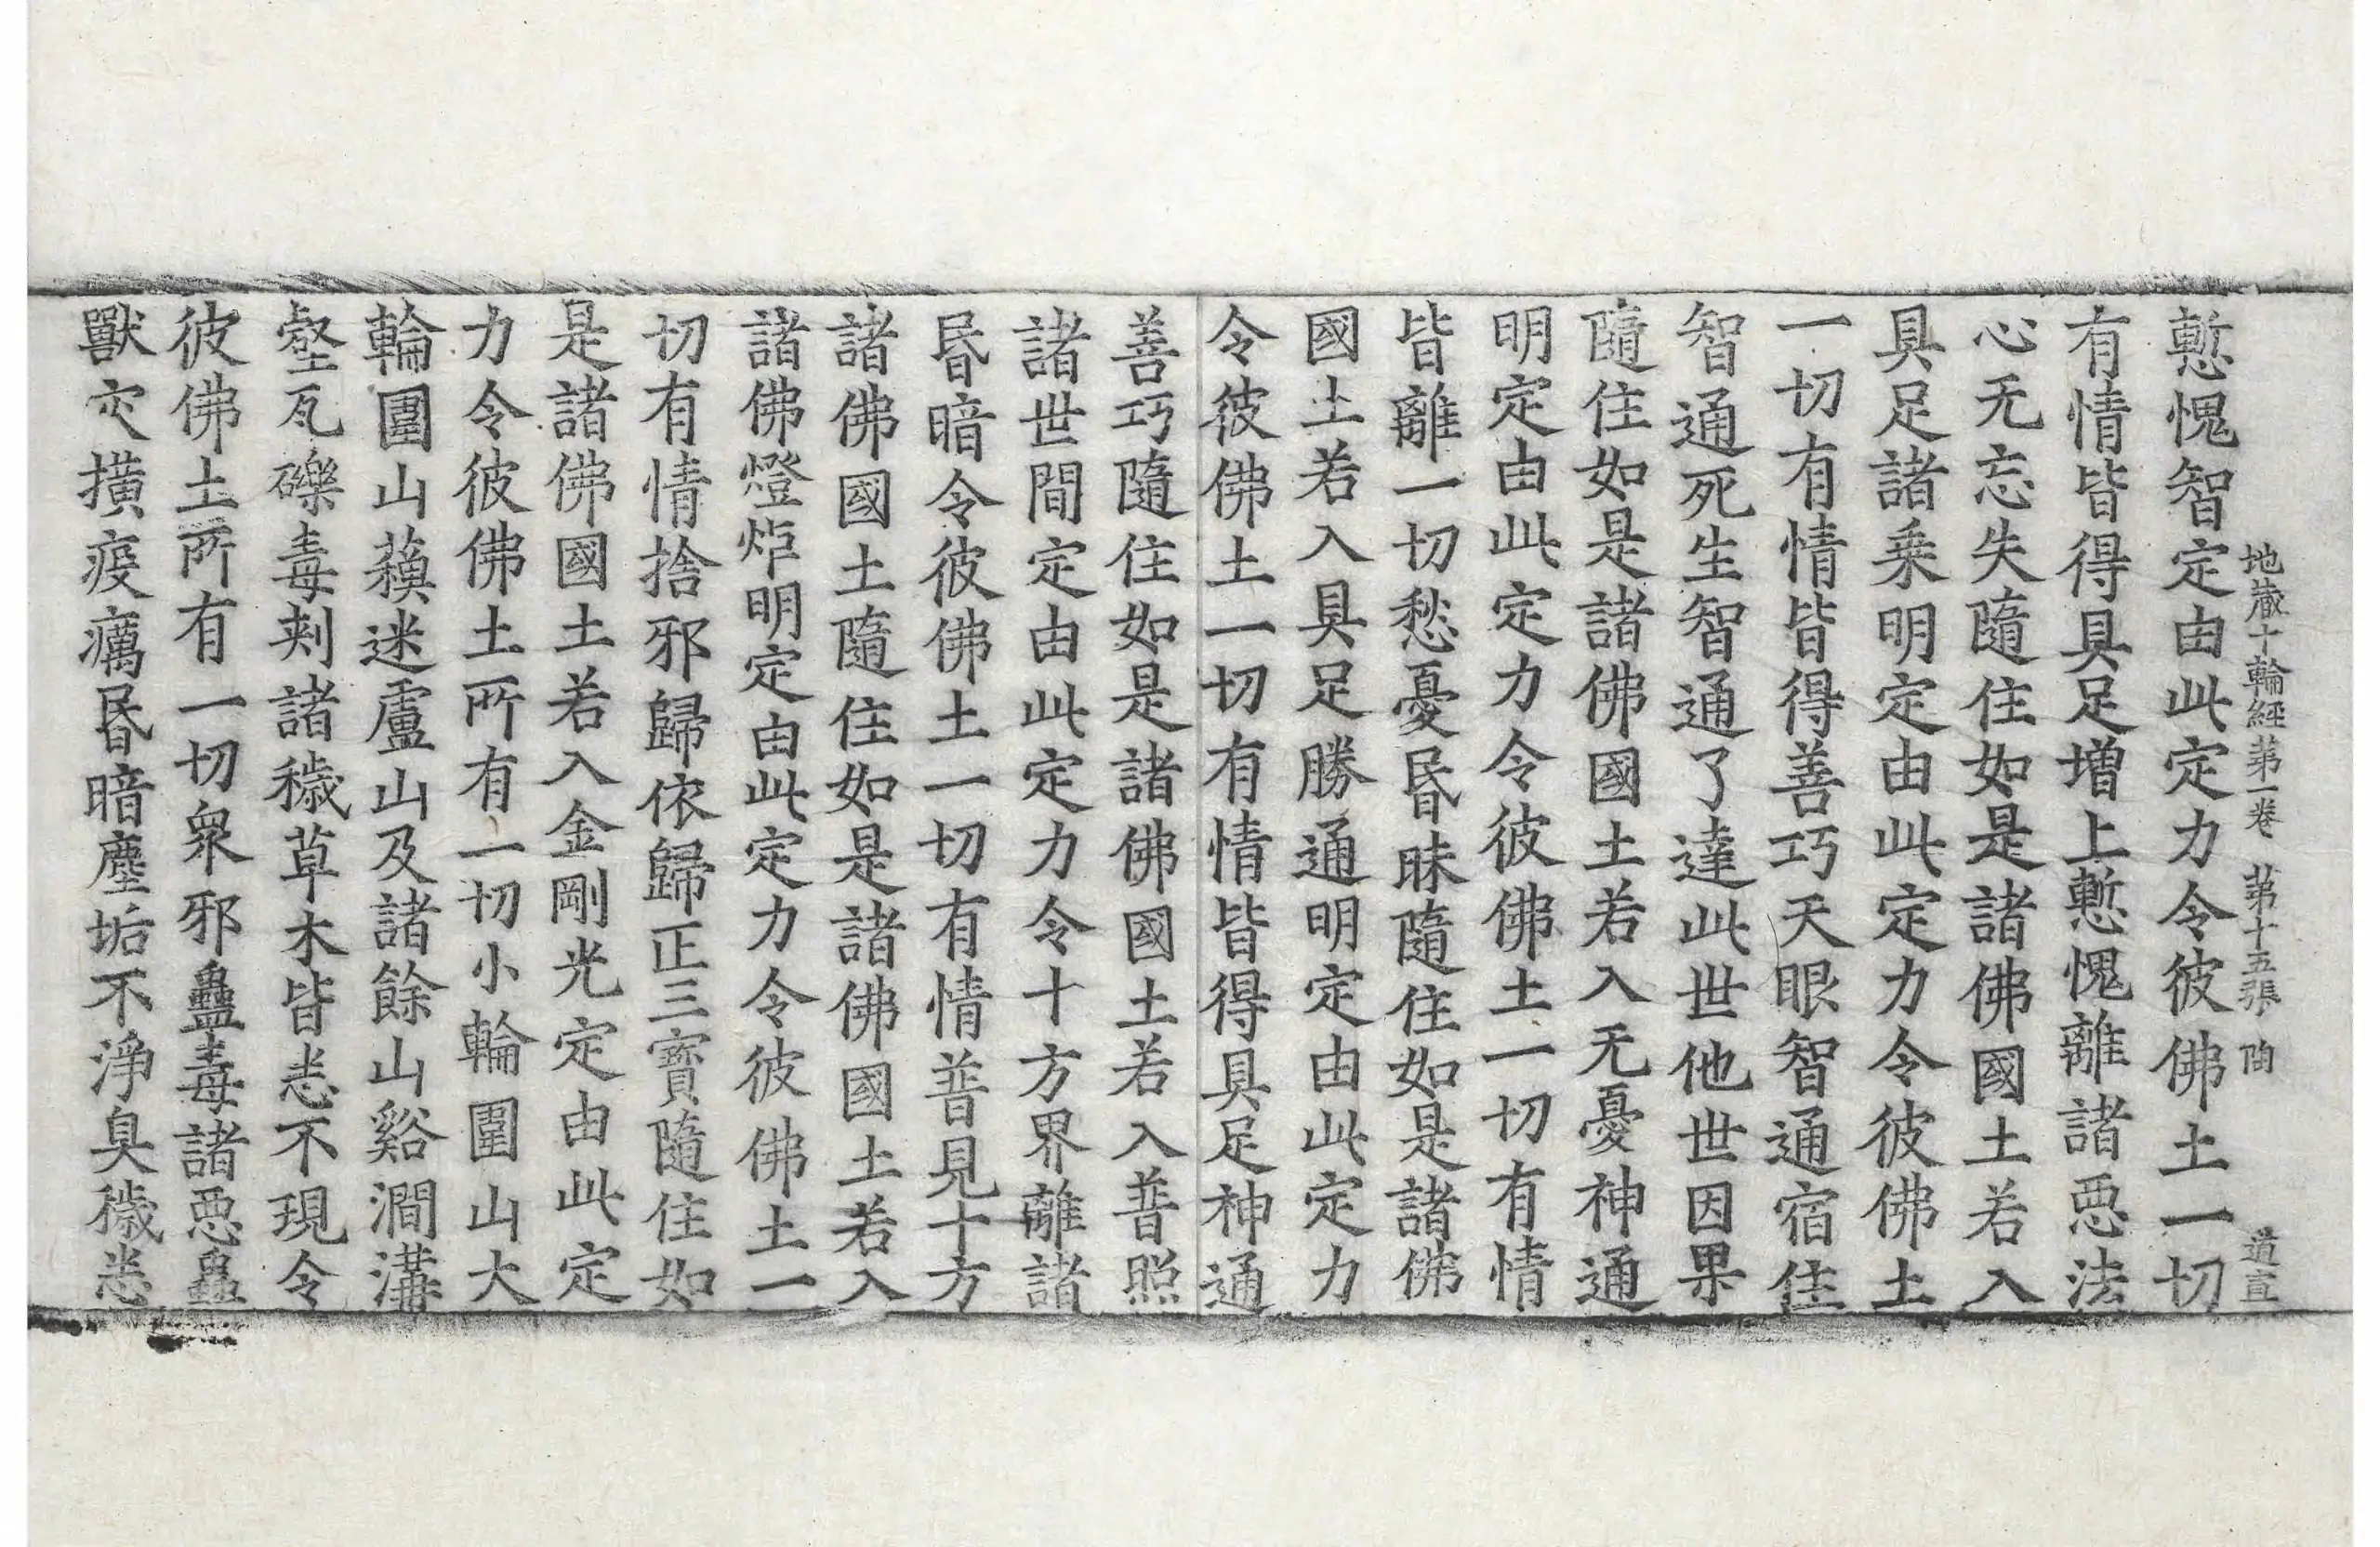 地藏十輪經第一卷 第十五張 陶 道宣
慙愧智定由此定力令彼佛土一切
有情皆得具足增上慙愧離諸惡法
心无忘失隨住如是諸佛國土若入
具足諸乘明定由此定力令彼佛土
一切有情皆得善巧天眼智通宿住
智通死生智通了達此世他世因果
隨住如是諸佛國土若入无憂神通
明定由此定力令彼佛土一切有情
皆離一切愁憂昬昧隨住如是諸佛
國土若入具足勝通明定由此定力
令彼佛土一切有情皆得具足神通
善巧隨住如是諸佛國土若入普照
諸世間定由此定力令十方界離諸
昬暗令彼佛土一切有情普見十方
諸佛國土隨住如是諸佛國土若入
諸佛燈炬明定由此定力令彼佛土一
切有情捨邪歸依歸正三寶隨住如
是諸佛國土若入金剛光定由此定
力令彼佛土所有一切小輪圍山大
輪圍山蘇迷盧山及諸餘山谿澗溝
壑瓦礫毒刺諸穢草木皆悉不現令
彼佛土所有一切衆邪蠱毒諸惡蟲
獸灾撗疫癘昬暗塵垢不淨臭穢悉